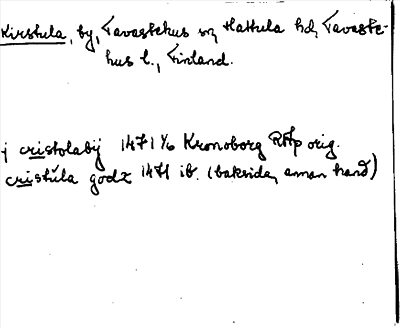 Kirstula, by, Tavastehus sn, Hattula hd, Tavaste-
hus l., Finland.
j cristolaby 1471 1/6 Kronoborg RAp orig.
cristula godz 1471 ib. (baksidan, annan hand)